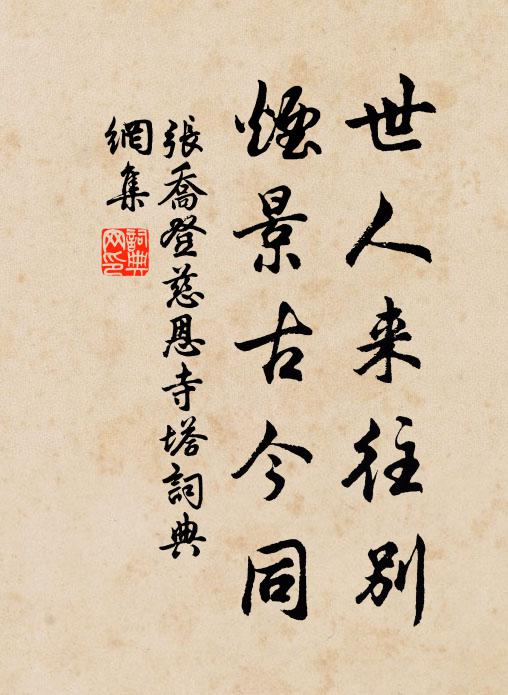 世人来往別
煙景古今同
張喬登慈恩寺塔詞典
網集
詞典
网印